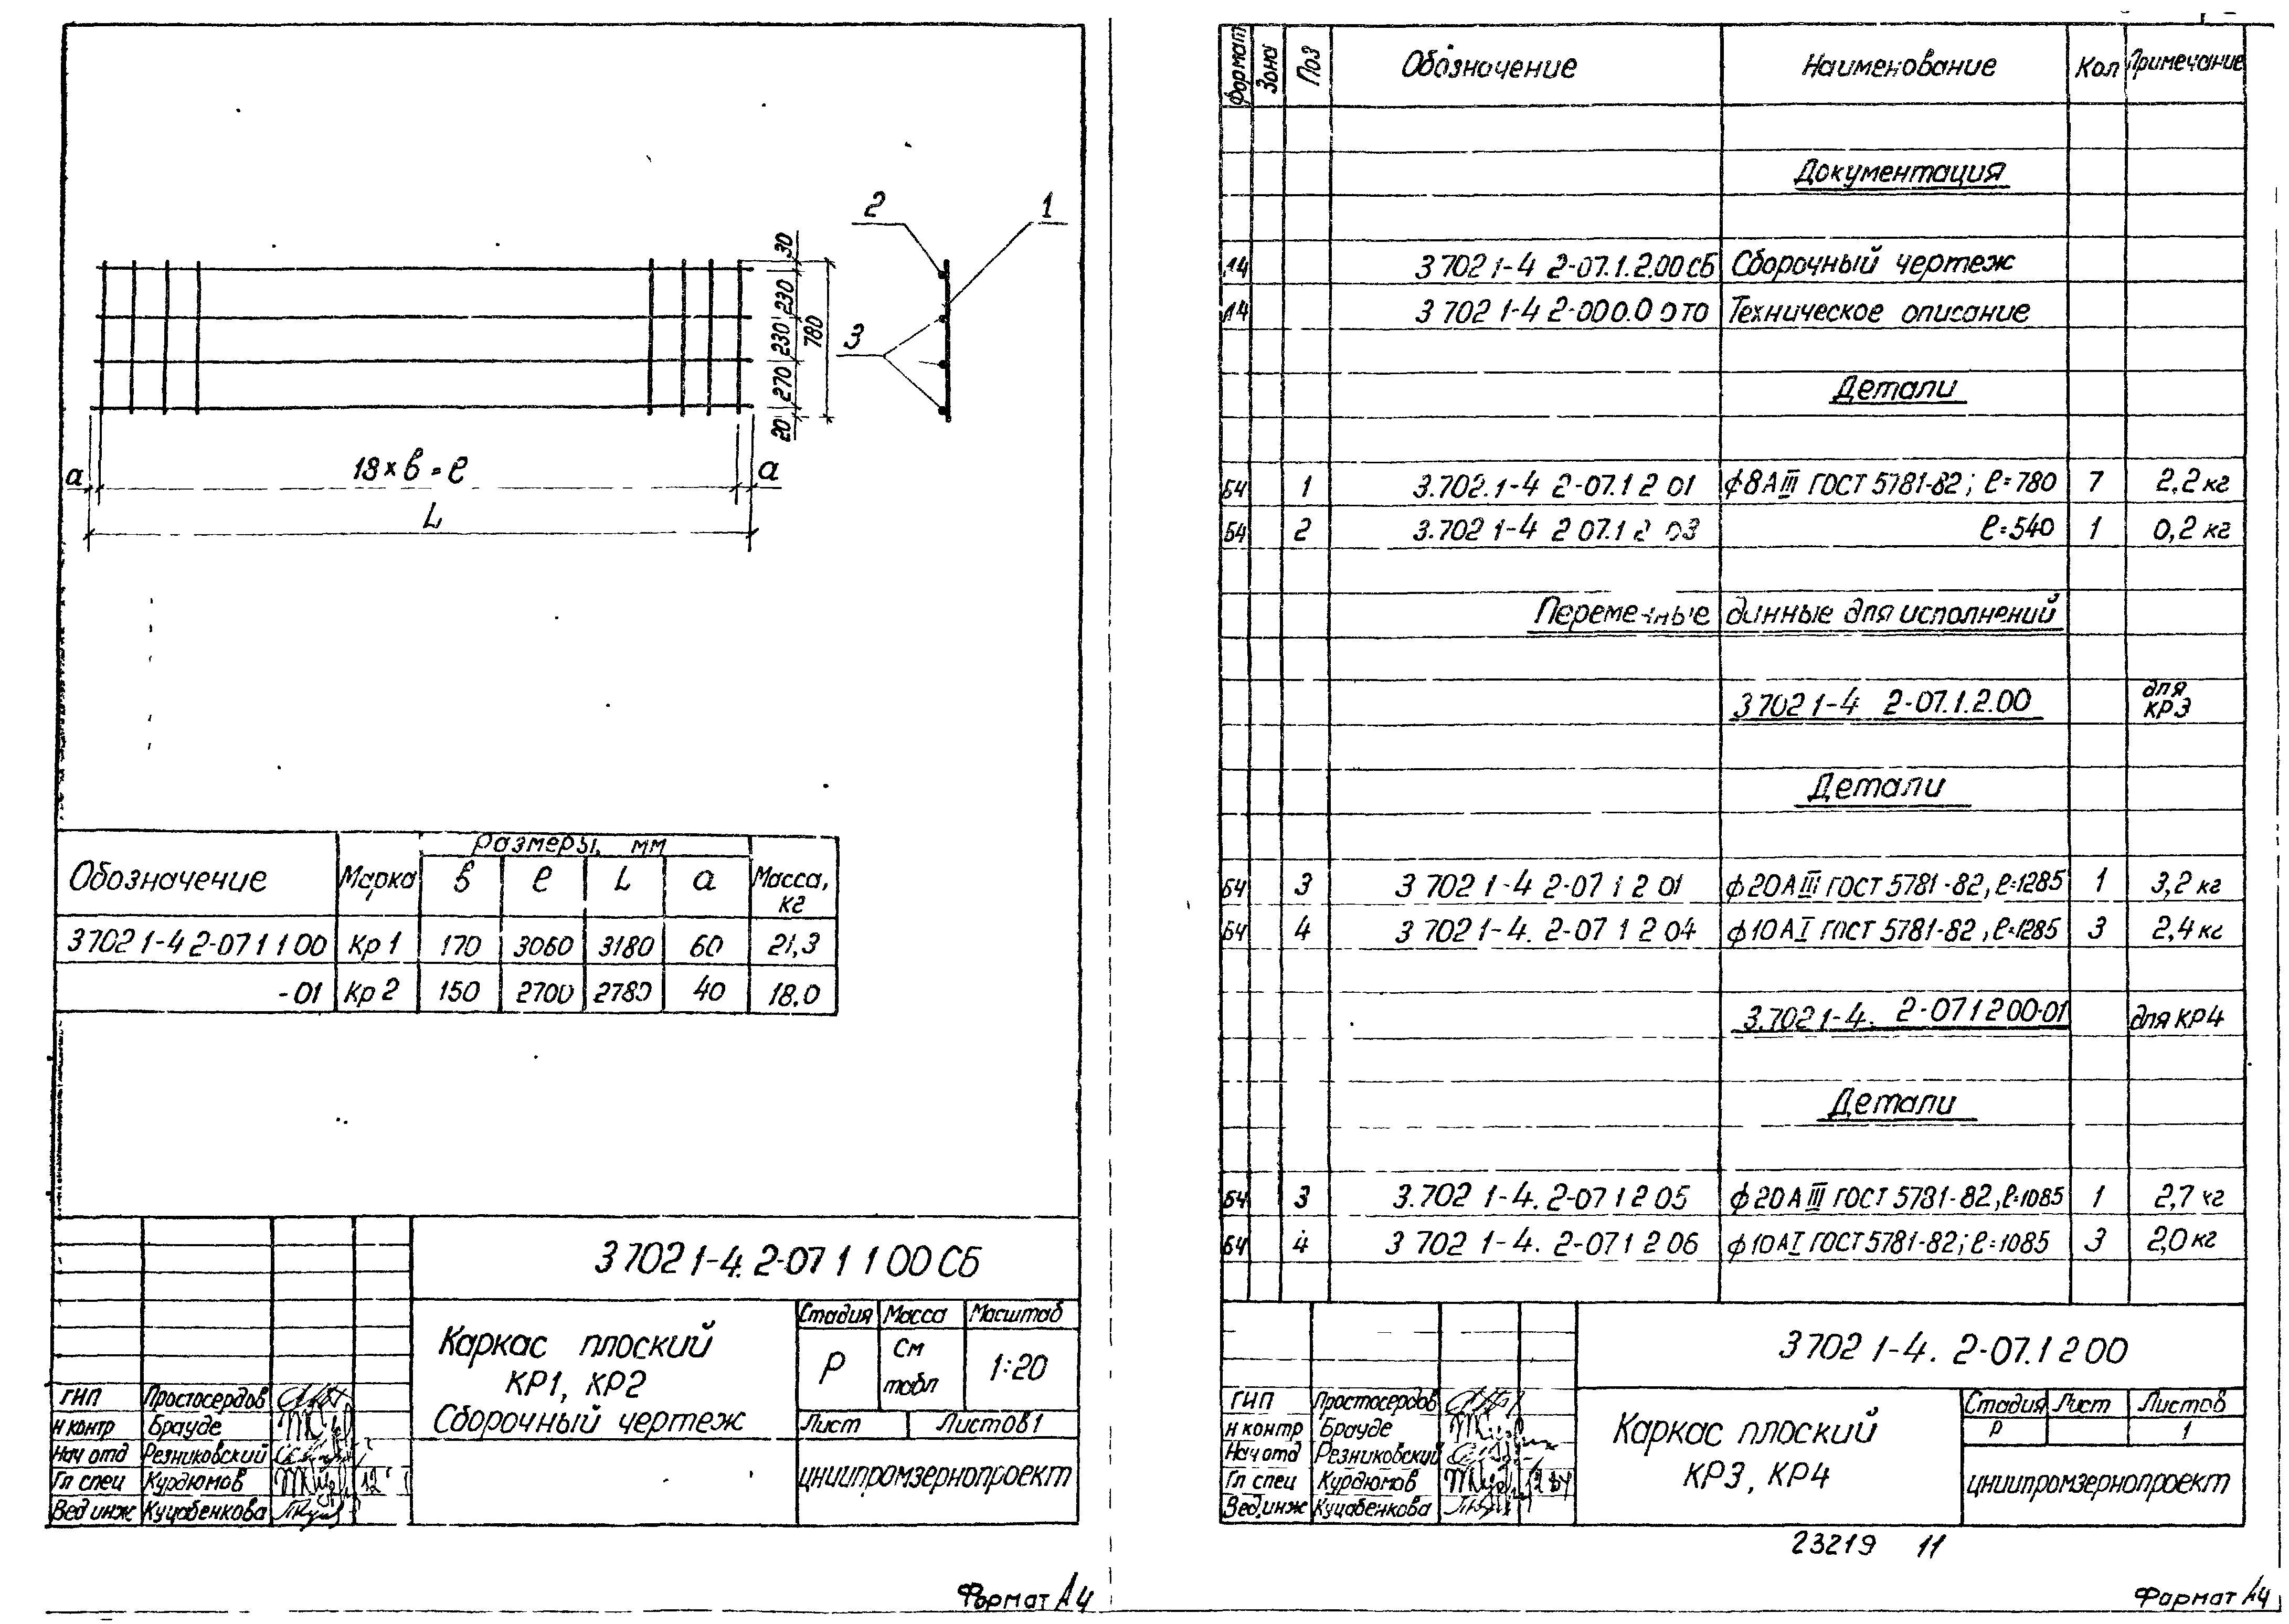 2
1
3
30
230
230
270
20
780
18×b=l
a
a
L
Обозначение
Марка
Размеры, мм
Масса, кг
b
l
L
a
3 702 1-4 2-07 1 1 00
Кр 1
170
3060
3180
60
21,3
-01
Кр 2
150
2700
2780
40
18,0
3 702 1-4. 2-07 1 1 00 СБ
Каркас плоский
КР1, КР2
Сборочный чертеж
Стадия
Масса
Масштаб
Р
См
табл
1:20
Лист
Листов 1
ЦНИИпромзернопроект
ГИП Простосердов
Н контр Брауде
Нач отд Резниковский
Гл спец Курдюмов
Вед инж Куцабенкова
Формат А4
Формат
Зона
Поз
Обозначение
Наименование
Кол
Примечание
Документация
А4 3 702 1-4 2-07.1.2.00 СБ Сборочный чертеж
А4 3 702 1-4 2-000.0 0 ТО Техническое описание
Детали
БЧ 1 3.702.1-4 2-07.1 2 01 ф8АIII ГОСТ 5781-82; l=780 7 2,2 кг
БЧ 2 3.702 1-4 2 07.1 2 03 l=540 1 0,2 кг
Переменные данные для исполнений
3 702 1-4 2-07.1.2.00 для
КР3
Детали
БЧ 3 3 702 1-4 2-07 1 2 01 ф20АIII ГОСТ 5781-82, l=1285 1 3,2 кг
БЧ 4 3 702 1-4. 2-07 1 2 04 ф10АI ГОСТ 5781-82, l=1285 3 2,4 кг
3.702 1-4. 2-07 1 2 00-01 для КР4
Детали
БЧ 3 3.702 1-4. 2-07 1 2 05 ф20АIII ГОСТ 5781-82, l=1085 1 2,7 кг
БЧ 4 3 702 1-4. 2-07 1 2 06 ф10АI ГОСТ 5781-82; l=1085 3 2,0 кг
3 702 1-4. 2-07.1 2 00
Каркас плоский
КР3, КР4
Стадия Лист Листов
Р 1
ЦНИИпромзернопроект
ГИП Простосердов
Н контр Брауде
Нач отд Резниковский
Гл спец Курдюмов
Вед.инж Куцабенкова
23219 11
Формат А4